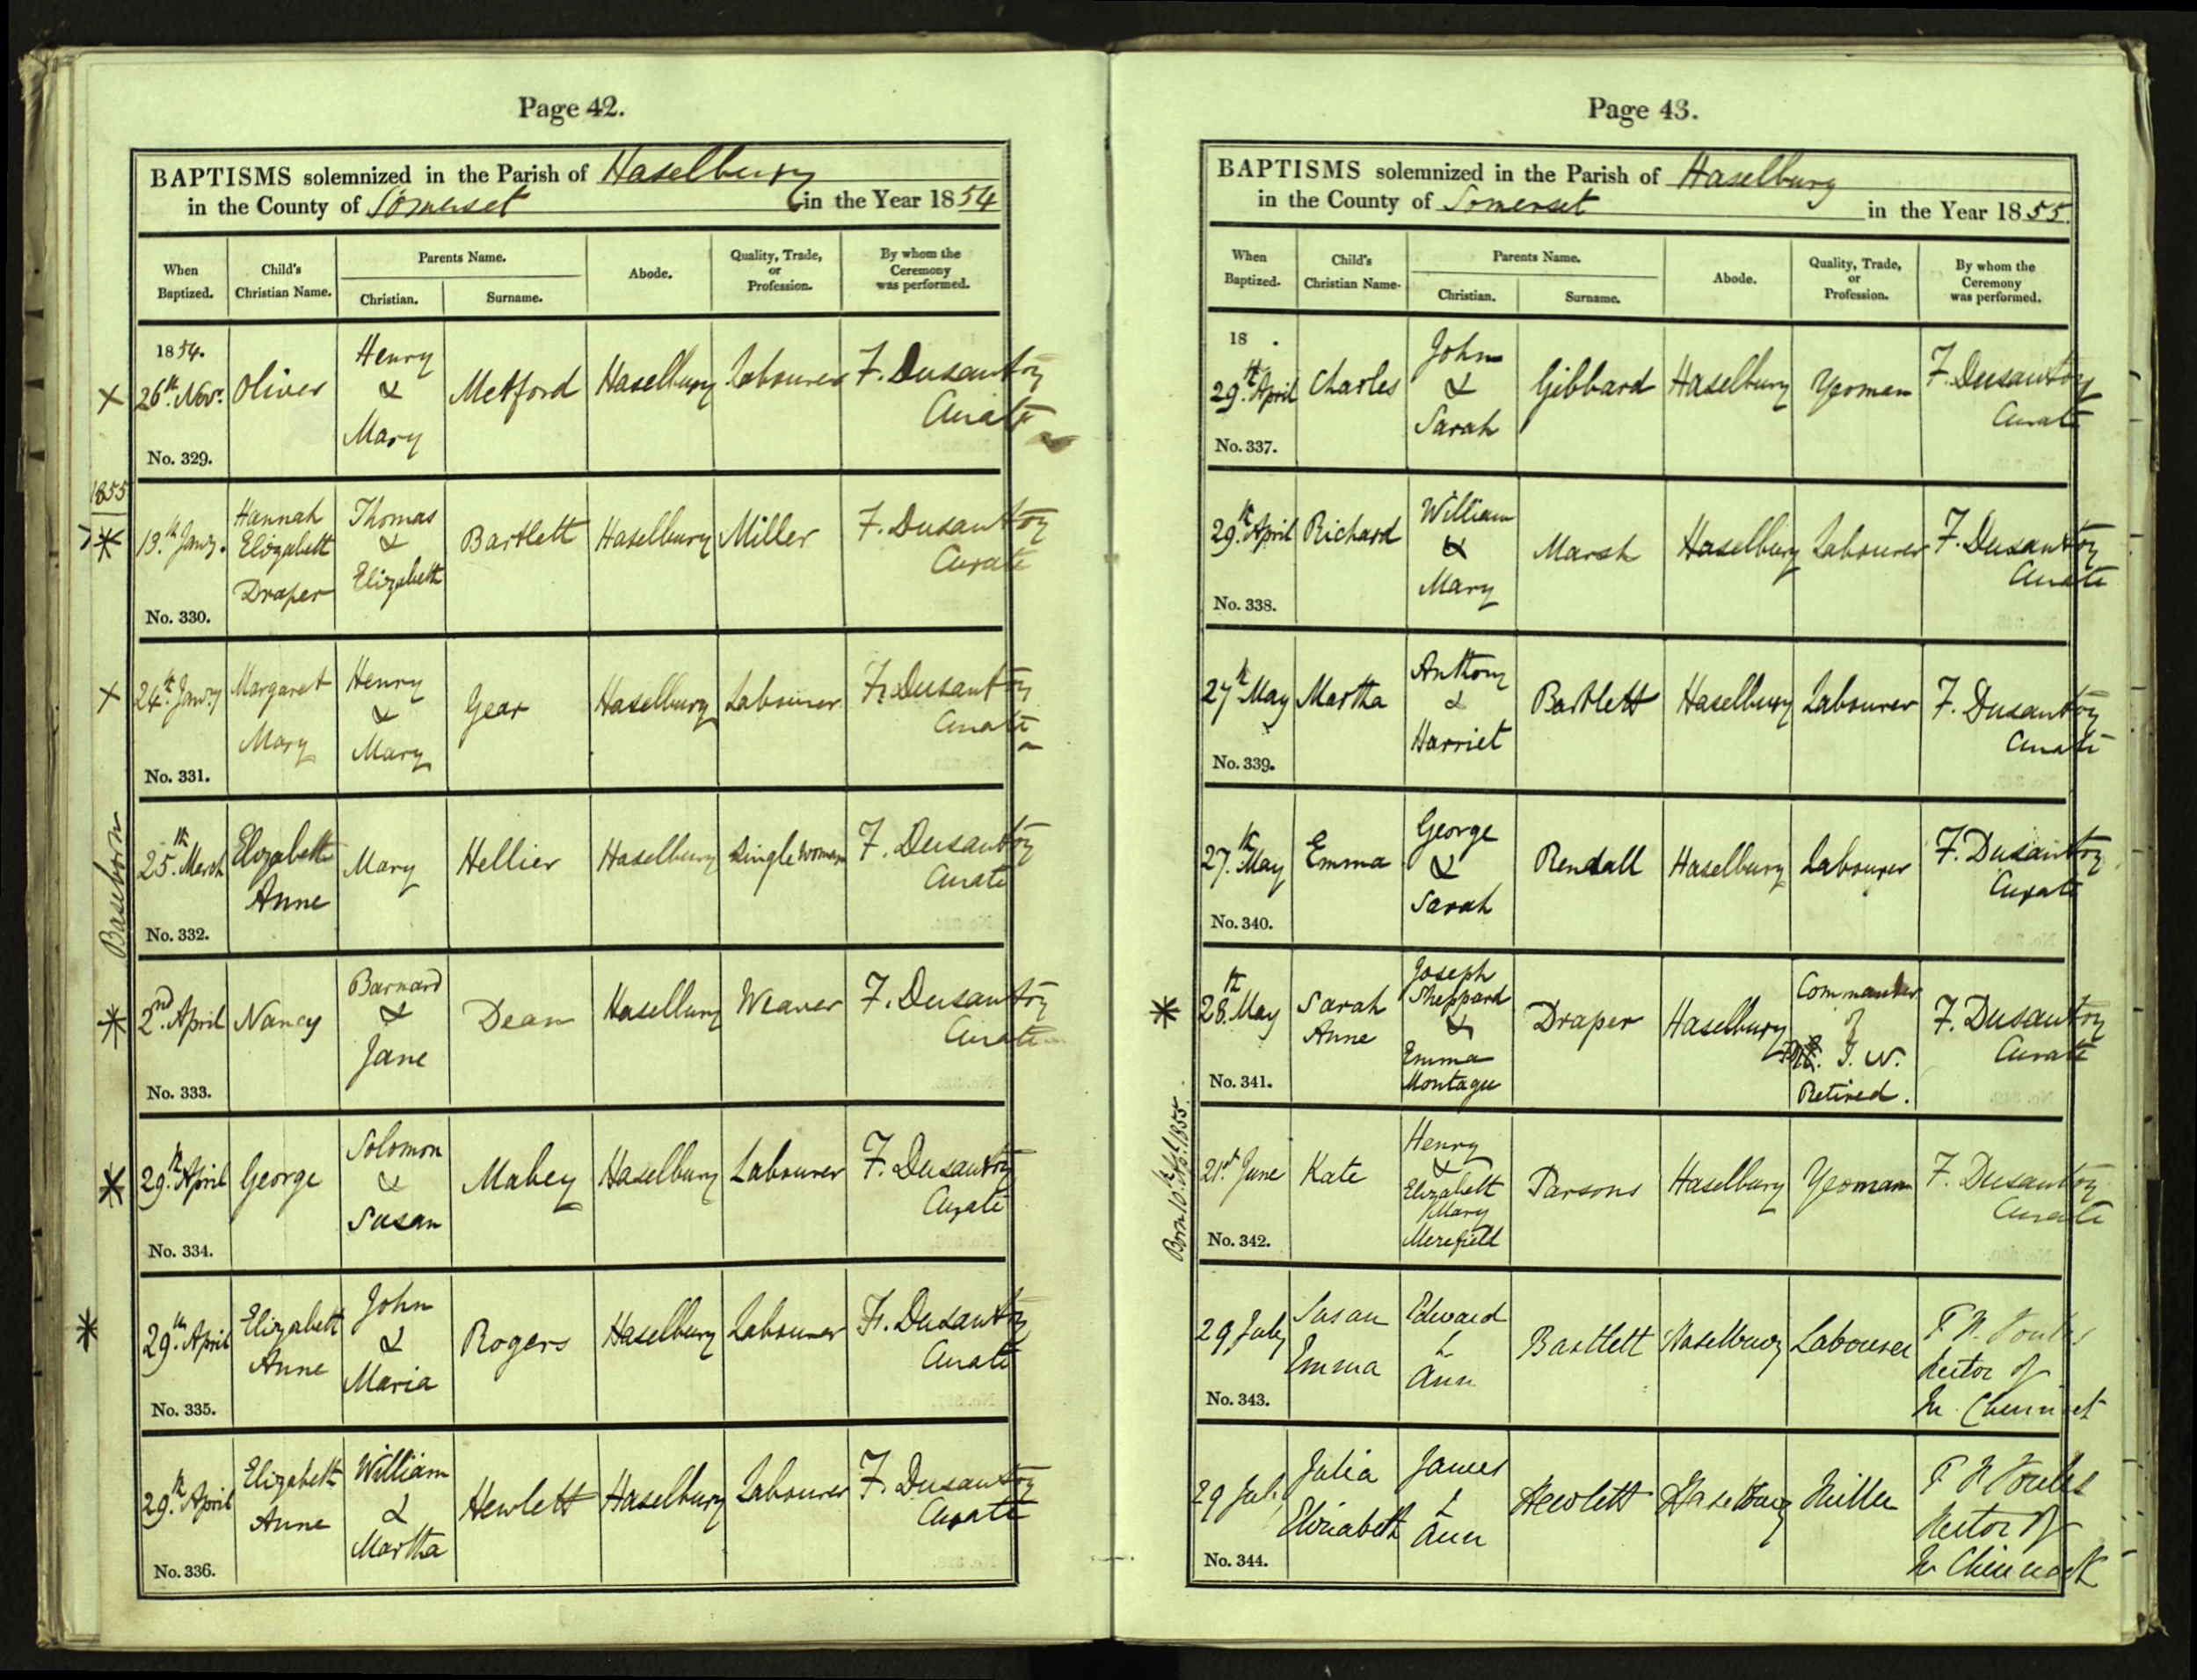 Page 42.
BAPTISMS solemnized in the Parish of Haselbury
in the County of Somerset in the Year 1854
When Baptized. Child's Christian Name. Parents Name. Christian. Surname. Abode. Quality, Trade, or Profession. By whom the Ceremony was performed.
1854.
26th Novr. Oliver Henry & Mary Metford Haselbury Labourer F. Dusautoy Curate
No. 329.
1855
13th Jany. Hannah Elizabeth Draper Thomas & Elizabeth Bartlett Haselbury Miller F. Dusautoy Curate
No. 330.
24th Jany Margaret Mary Henry & Mary Gear Haselbury Labourer F. Dusautoy Curate
No. 331.
Baseborn
25th March Elizabeth Anne Mary Hellier Haselbury Single Woman F. Dusautoy Curate
No. 332.
2nd April Nancy Barnard & Jane Dean Haselbury Weaver F. Dusautoy Curate
No. 333.
29th April George Solomon & Susan Mabey Haselbury Labourer F. Dusautoy Curate
No. 334.
29th April Elizabeth Anne John & Maria Rogers Haselbury Labourer F. Dusautoy Curate
No. 335.
29th April Elizabeth Anne William & Martha Hewlett Haselbury Labourer F. Dusautoy Curate
No. 336.
Page 43.
BAPTISMS solemnized in the Parish of Haselbury
in the County of Somerset in the Year 1855.
When Baptized. Child's Christian Name. Parents Name. Christian. Surname. Abode. Quality, Trade, or Profession. By whom the Ceremony was performed.
18 .
29th April Charles John & Sarah Gibbard Haselbury Yeoman F. Dusautoy Curate
No. 337.
29th April Richard William & Mary Marsh Haselbury Labourer F. Dusautoy Curate
No. 338.
27th May Martha Anthony & Harriet Bartlett Haselbury Labourer F. Dusautoy Curate
No. 339.
27th May Emma George & Sarah Rendall Haselbury Labourer F. Dusautoy Curate
No. 340.
28th May Sarah Anne Joseph Sheppard & Emma Montagu Draper Haselbury Commander of Retired. F. Dusautoy Curate
No. 341.
Born 10th 1855.
21st June Kate Henry & Elizabeth Mary Merefield Parsons Haselbury Yeoman F. Dusautoy Curate
No. 342.
29 July Susan Emma Edward & Ann Bartlett Haselbury Labourer Rector of
No. 343.
29 July Julia Elizabeth James & Ann Hewlett Haselbury Miller Rector of Chinnock
No. 344.